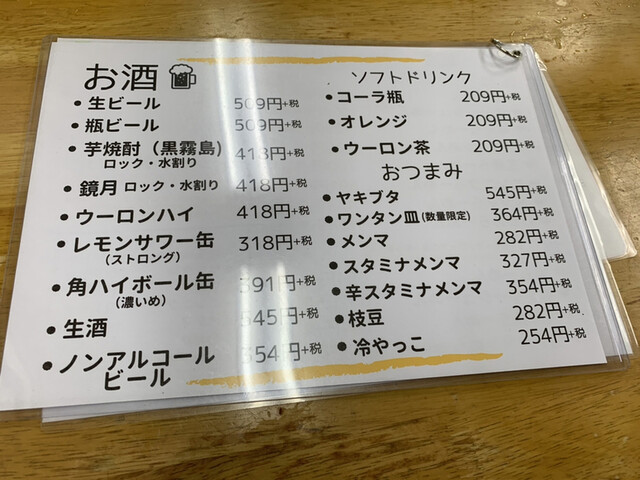 お酒
・生ビール 509円+税
・瓶ビール 509円+税
・芋焼酎（黒霧島） 418円+税
ロック・水割り
・鏡月 ロック・水割り 418円+税
・ウーロンハイ 418円+税
・レモンサワー缶 318円+税
（ストロング）
・角ハイボール缶 391円+税
（濃いめ）
・生酒 545円+税
・ノンアルコール 354円+税
ビール
ソフトドリンク
・コーラ瓶 209円+税
・オレンジ 209円+税
・ウーロン茶 209円+税
おつまみ
・ヤキブタ 545円+税
・ワンタン皿(数量限定) 364円+税
・メンマ 282円+税
・スタミナメンマ 327円+税
・辛スタミナメンマ 354円+税
・枝豆 282円+税
・冷やっこ 254円+税